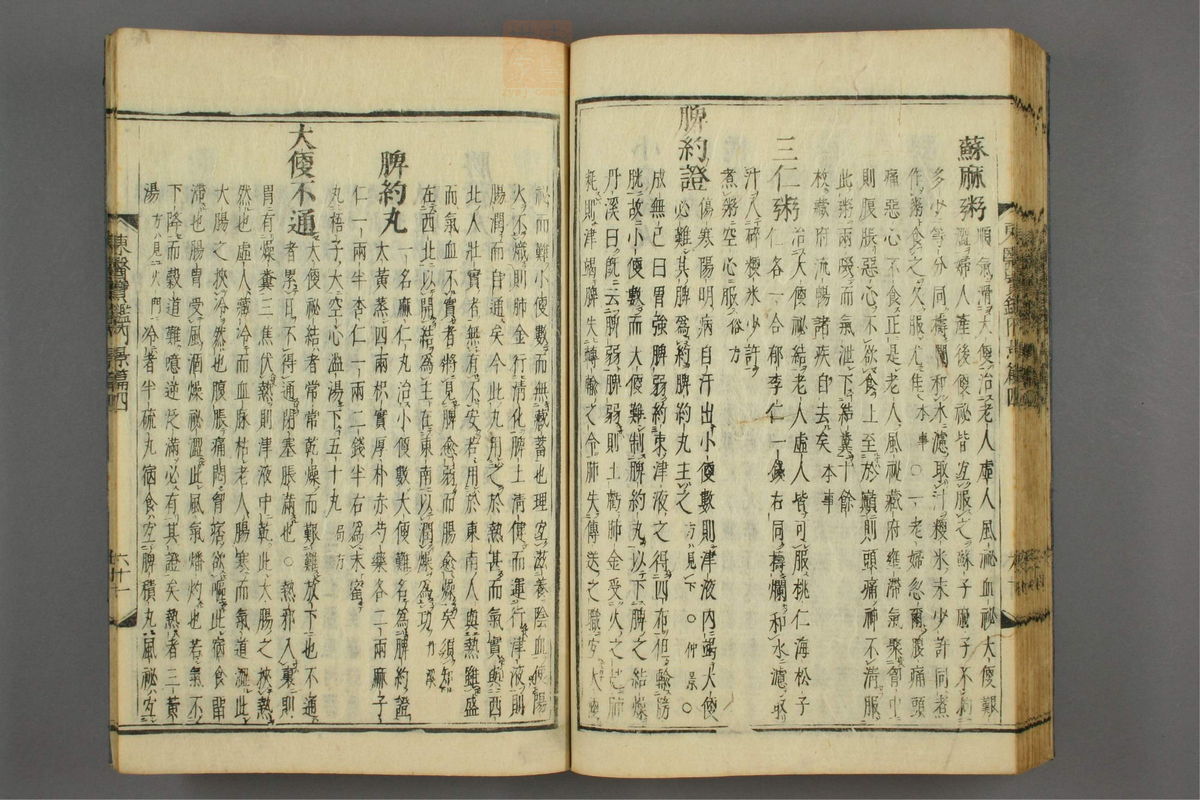 蘇麻粥
順氣滑大便治老人虛人風祕血祕大便艱
澁婦人產後便祕皆宜服之蘇子麻子不拘
多少等分同擣爛和水濾取汁粳米末少許同煮
作粥食之久服尤佳本事○一老婦忽爾腹痛頭
痛惡心不食正是老人風祕藏府壅滯氣聚胷中
則腹脹惡心不欲食上至於巓則頭痛神不淸服
此粥兩㼜而氣泄下結糞十餘
枚藏府流暢諸疾自去矣本事
三仁粥
治大便祕結老人虛人皆可服桃仁海松子
仁各一合郁李仁一錢右同擣爛和水濾取
汁入碎粳米少許
煮粥空心服俗方
脾約證
傷寒陽明病自汗出小便數則津液內竭大便
必難其脾爲約脾約丸主之方見下仲景○
成無已曰胃強脾弱約束津液不得四布但輸膀
胱故小便數而大便難制脾約丸以下脾之結燥
丹溪曰旣云脾弱脾弱則土虧肺金受火之
耗則津竭脾失轉輸之令肺失傳送之職宜大便
祕而難小便數而無藏蓄也理宜滋養陰血使陽
火不熾則肺金行淸化脾土淸健而運行津液則
腸潤而自通矣今此丸用之於熱甚而氣實與西
北人壯實者無有不安若用於東南人與熱雖盛
而氣血不實者將見脾愈弱而腸愈燥矣須知
在西北以開結爲主在東南以潤燥爲功
脾約丸
一名麻仁丸治小便數大便難名爲脾約證
大黃蒸四兩枳實厚朴赤芍藥各二兩麻子
仁一兩半杏仁一兩二錢半右爲末蜜
丸梧子大空心溫湯下五十丸局方
大便不通
大便祕結者常常乾燥而艱難放下也不通
者累日不得通閉塞脹滿也○熱邪入裏則
胃有燥糞三焦伏熱則津液中乾此大腸之挾熱
然也虛人藏冷而血脉枯老人腸寒而氣道澁此
大腸之挾冷然也腹脹痛悶胷痞欲嘔此宿食留
滯也腸胃受風涸燥祕澁此風氣燔灼也若氣不
下降而穀道難噫逆泛滿必有其證矣熱者三黃
湯方見火門冷者半硫丸宿食宜脾積丸風祕宜
東醫寶鑑
內景篇四
六十一